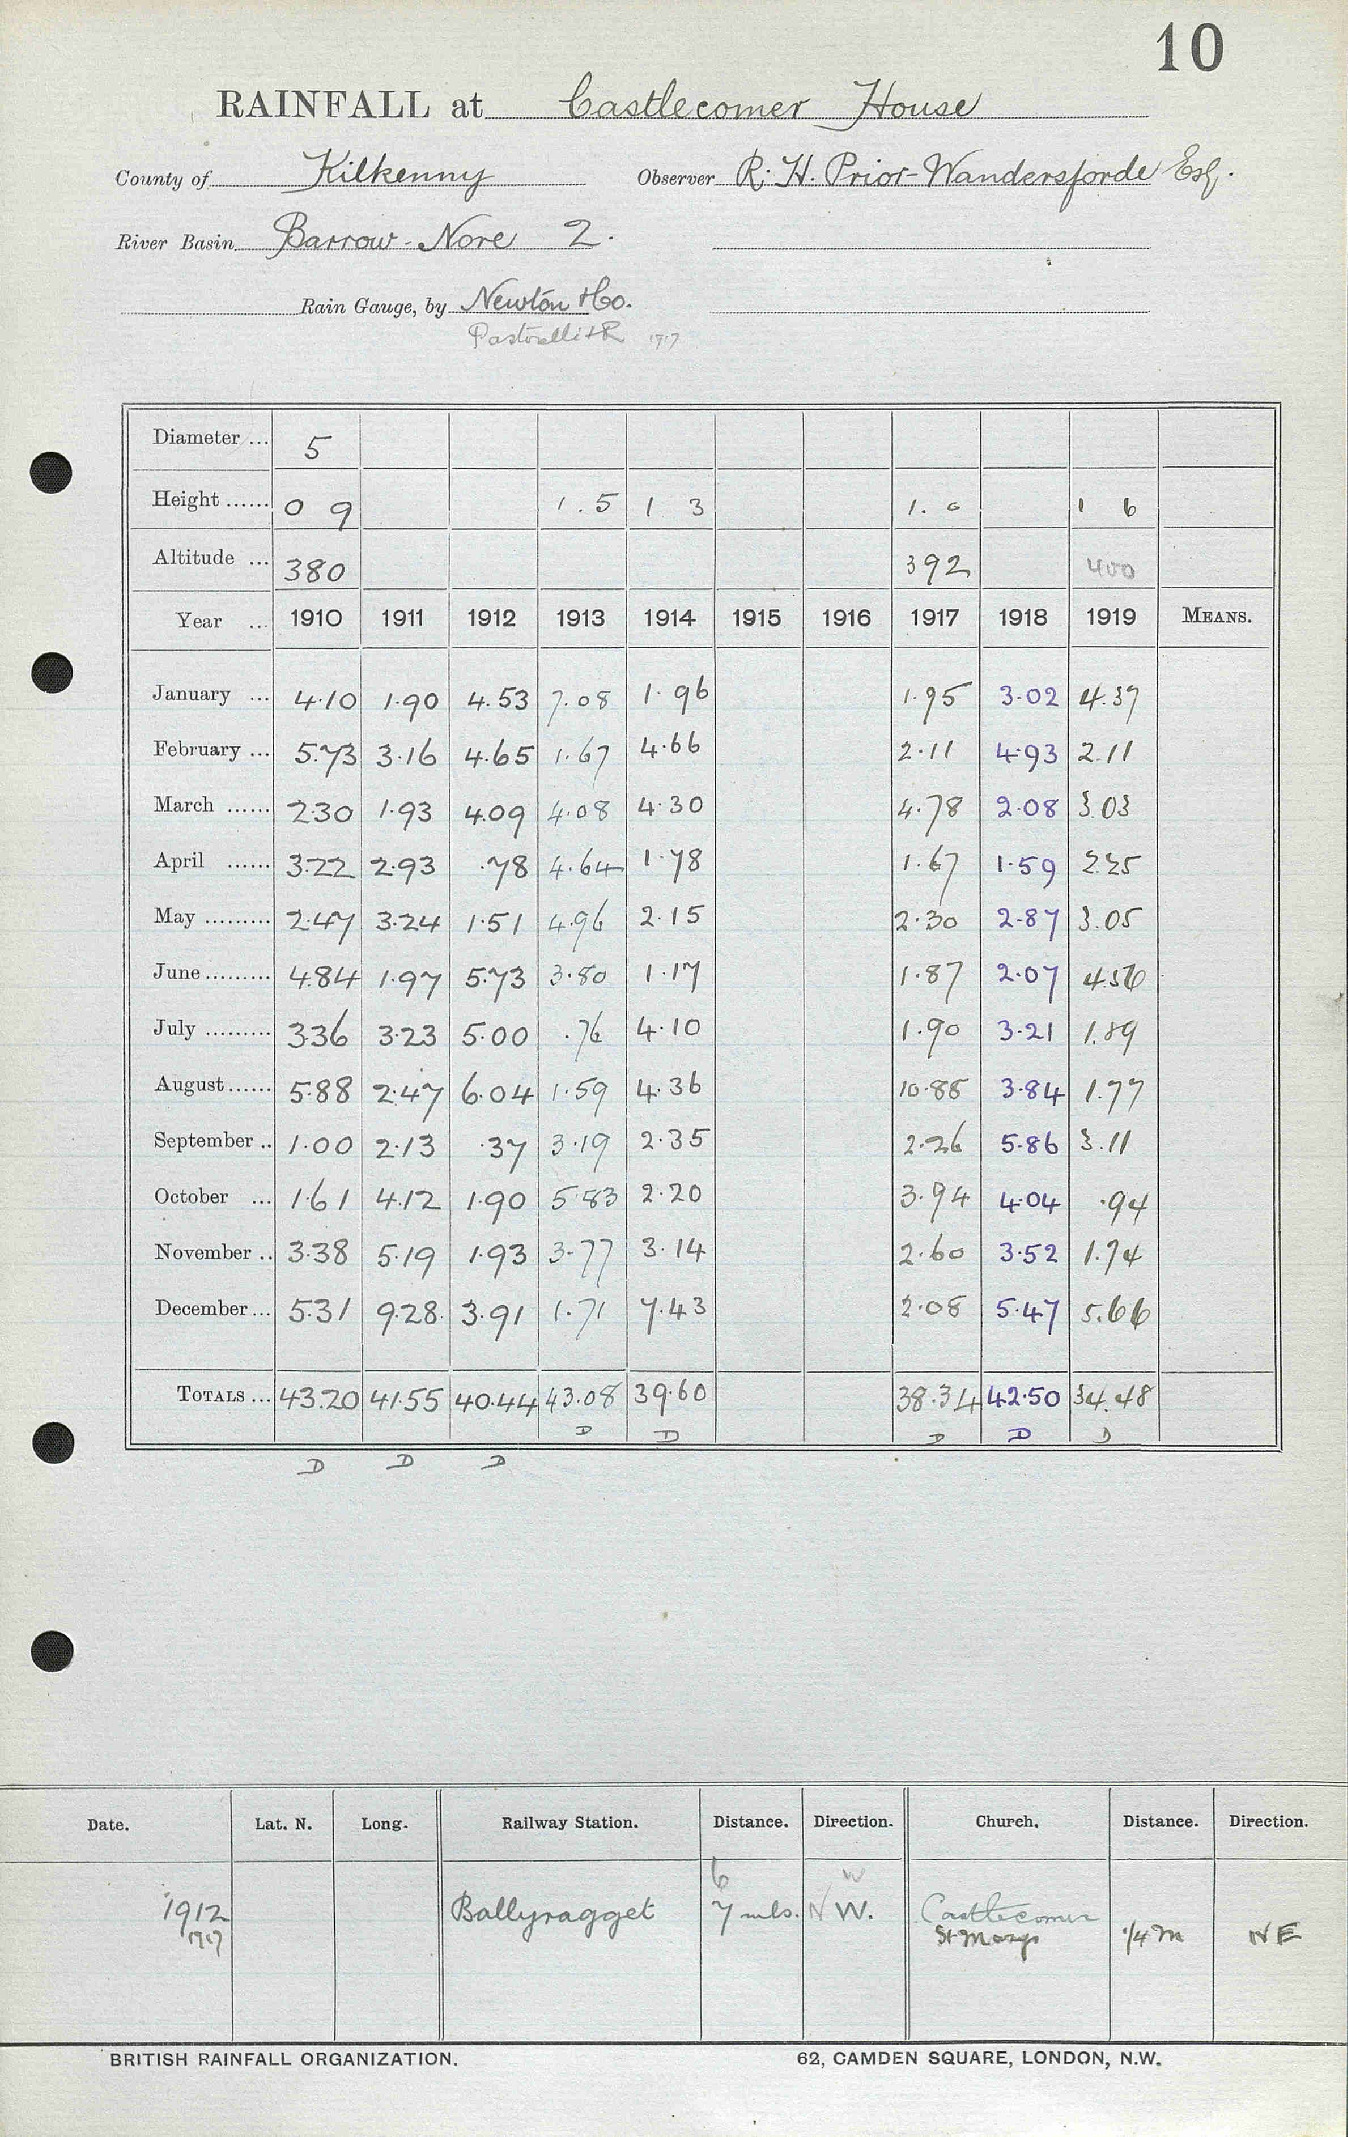 10
RAINFALL at Castlecomer House
County of Kilkenny Observer R. H. Prior-Wandersforde Esq.
River Basin Barrow-Nore 2.
Rain Gauge, by Newton & Co.
Pastorelli & R 1917
Diameter ... 5
Height ...... 0 9 1.5 1 3 1.0 1 6
Altitude ... 380 392 400
Year ... 1910 1911 1912 1913 1914 1915 1916 1917 1918 1919 MEANS.
January ... 4.10 1.90 4.53 7.08 1.96 1.95 3.02 4.37
February ... 5.73 3.16 4.65 1.67 4.66 2.11 4.93 2.11
March ...... 2.30 1.93 4.09 4.08 4.30 4.78 2.08 3.03
April ...... 3.22 2.93 .78 4.64 1.78 1.67 1.59 2.25
May ......... 2.47 3.24 1.51 4.96 2.15 2.30 2.87 3.05
June ......... 4.84 1.97 5.73 3.80 1.17 1.87 2.07 4.56
July ......... 3.36 3.23 5.00 .76 4.10 1.90 3.21 1.89
August ...... 5.88 2.47 6.04 1.59 4.36 10.88 3.84 1.77
September .. 1.00 2.13 .37 3.19 2.35 2.26 5.86 3.11
October ... 1.61 4.12 1.90 5.83 2.20 3.94 4.04 .94
November .. 3.38 5.19 1.93 3.77 3.14 2.60 3.52 1.74
December ... 5.31 9.28 3.91 1.71 7.43 2.08 5.47 5.66
TOTALS ... 43.20 41.55 40.44 43.08 39.60 38.34 42.50 34.48
D D D D D
D D D
Date. Lat. N. Long. Railway Station. Distance. Direction. Church. Distance. Direction.
6 W
1912 Ballyragget 7 mls. N W. Castlecomer
1917 St Marys 1/4 m NE
BRITISH RAINFALL ORGANIZATION. 62, CAMDEN SQUARE, LONDON, N.W.